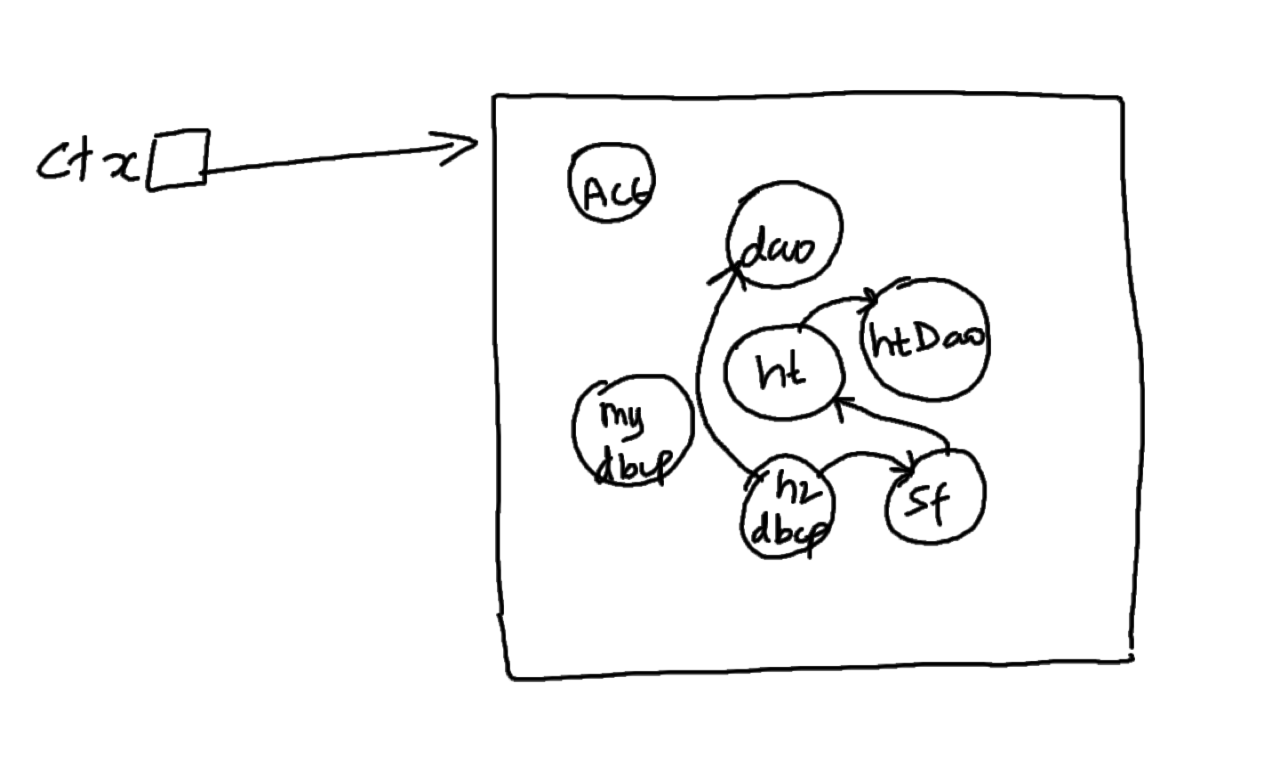 ctx
Acc
dao
htDao
ht
my
dbcp
h2
dbcp
sf